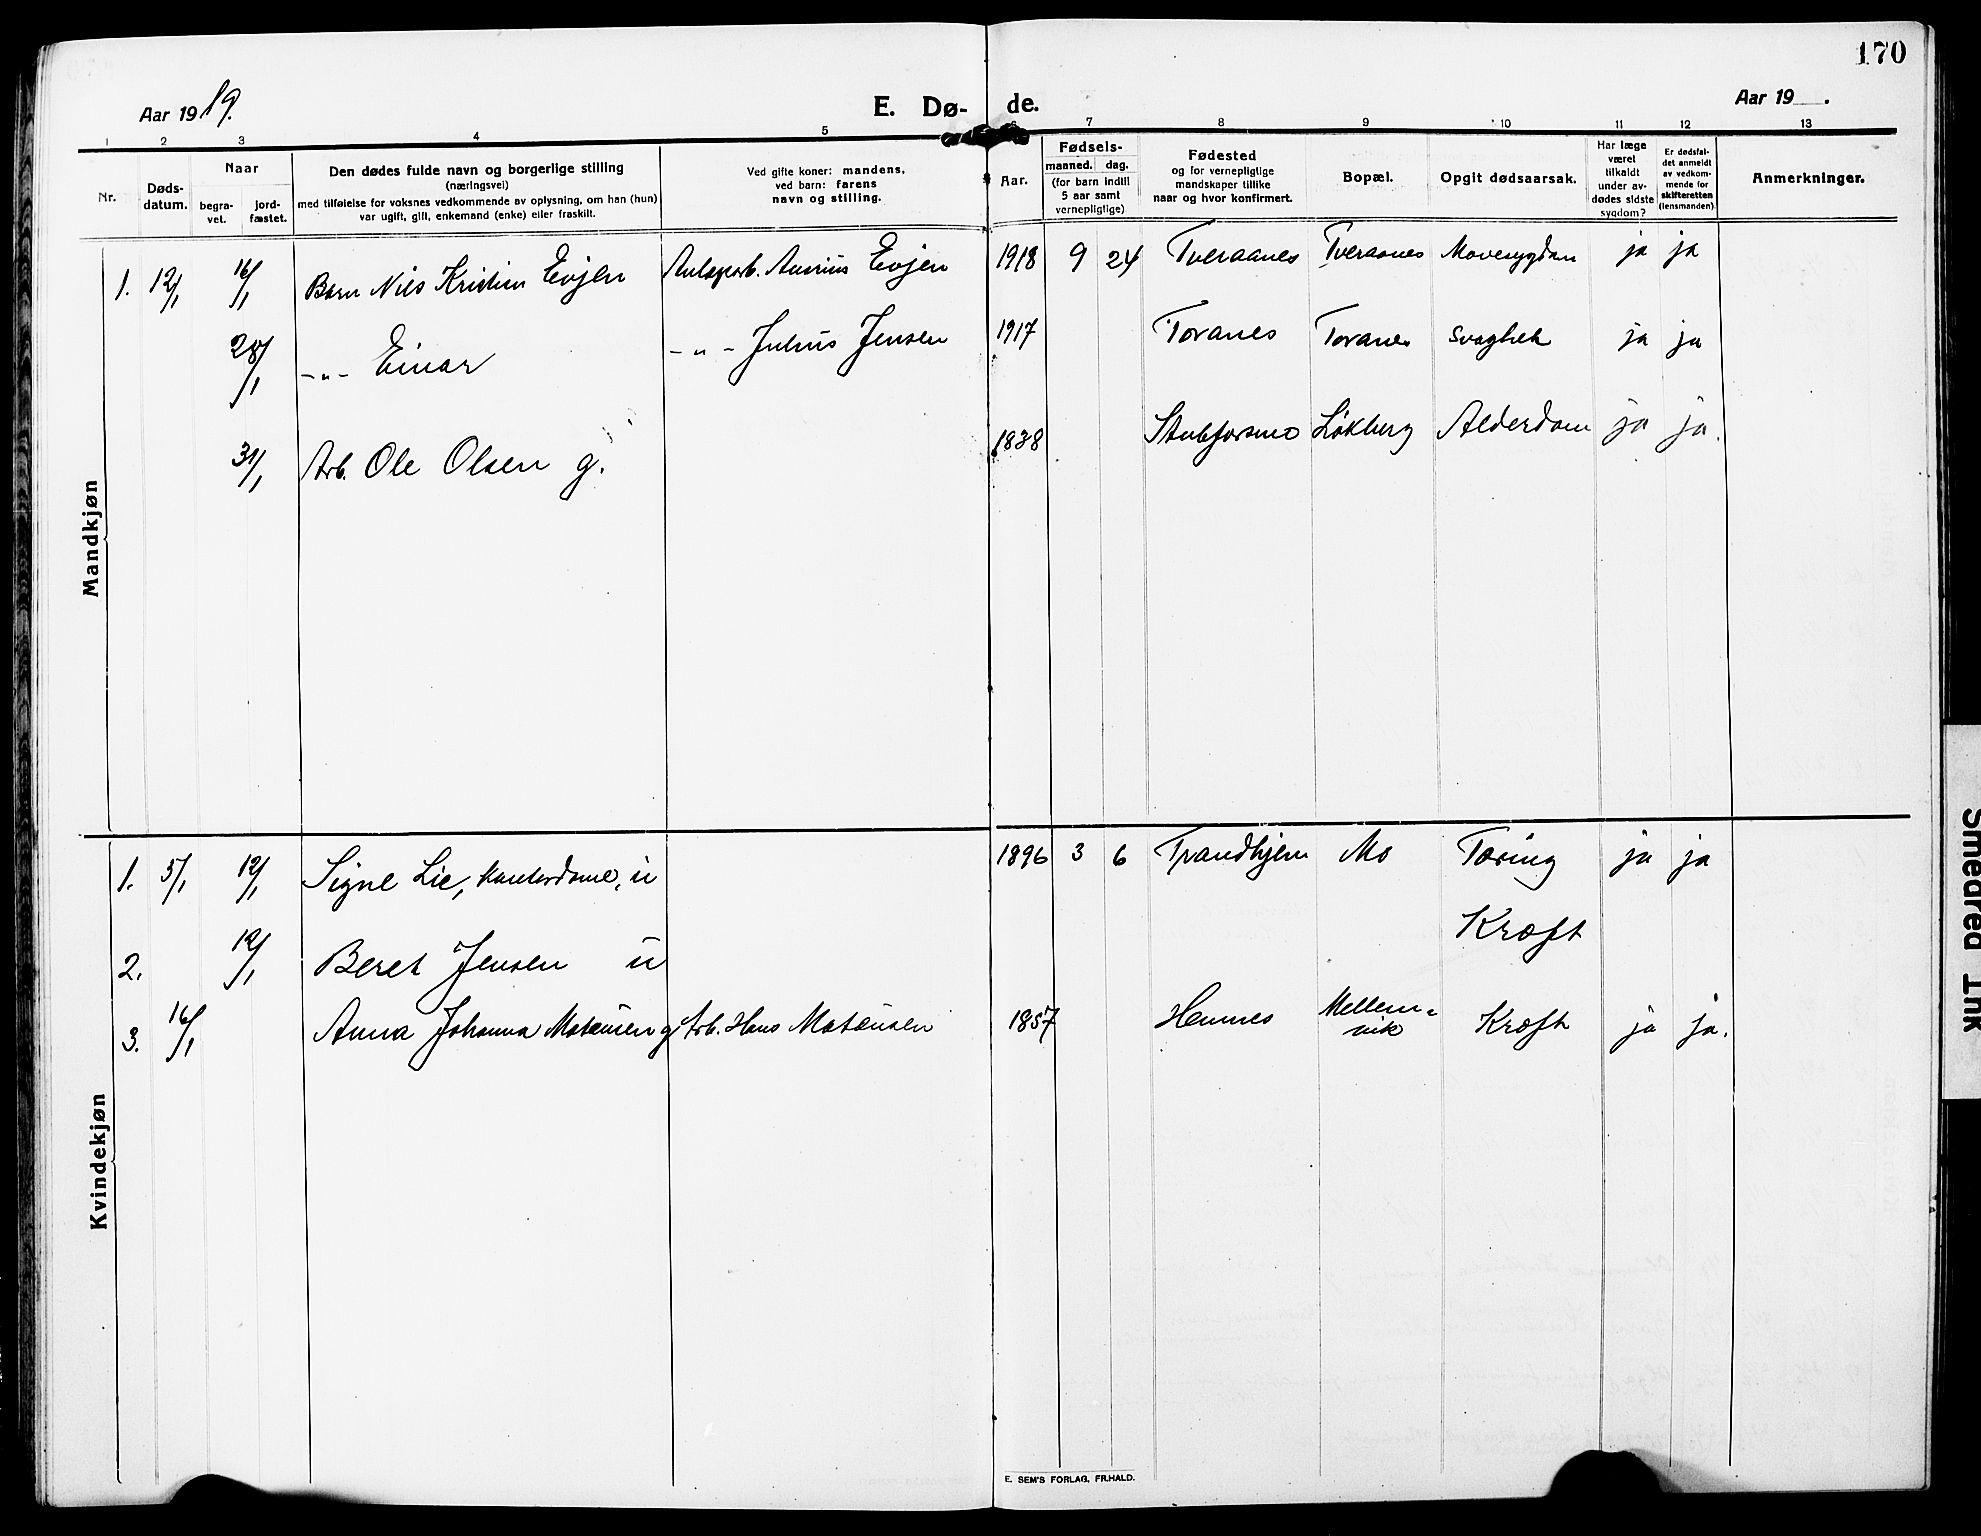 170
Aar 1919.
E. Dø- de.
Aar 19 .
1 2 3 4 5 6 7 8 9 10 11 12 13
Nr.
Døds-
datum.
Naar
begra-
vet.
jord-
fæstet.
Den dødes fulde navn og borgerlige stilling
(næringsvei)
med tilføielse for voksnes vedkommende av oplysning, om han (hun)
var ugift, gift, enkemand (enke) eller fraskilt.
Ved gifte koner: mandens,
ved barn: farens
navn og stilling.
Aar.
Fødsels-
maaned. dag.
(for barn indtil
5 aar samt
vernepligtige)
Fødested
og for vernepligtige
mandskaper tillike
naar og hvor konfirmert.
Bopæl.
Opgit dødsaarsak.
Har læge
været
tilkaldt
under av-
dødes sidste
sygdom?
Er dødsfal-
det anmeldt
av vedkom-
mende for
skifteretten
(lensmanden).
Anmerkninger.
Mandkjøn
1. 12/1 16/1 Barn Nils Kristian Evjen Evjen 1918 9 24 Tveraanes Tveraanes Mavesygdom ja ja
28/1 -„- Einar -„- Julius Jensen 1917 Toranes Toranes Svaghet ja ja
31/1 Arb. Ole Olsen g. 1838 Stubforsmo Løkberg Alderdom ja ja.
Kvindekjøn
1. 5/1 12/1 Signe Lie, kontordame, u 1896 3 6 Trondhjem Mo Tæring ja ja
2. 12/1 Beret Jensen u Kræft
3. 16/1 Anna Johanna Mateusen g Arb. Hans Mateusen 1857 Hemnes Mellem-
vik Kræft ja ja.
E. SEM'S FORLAG, FR.HALD.
Smeared Ink